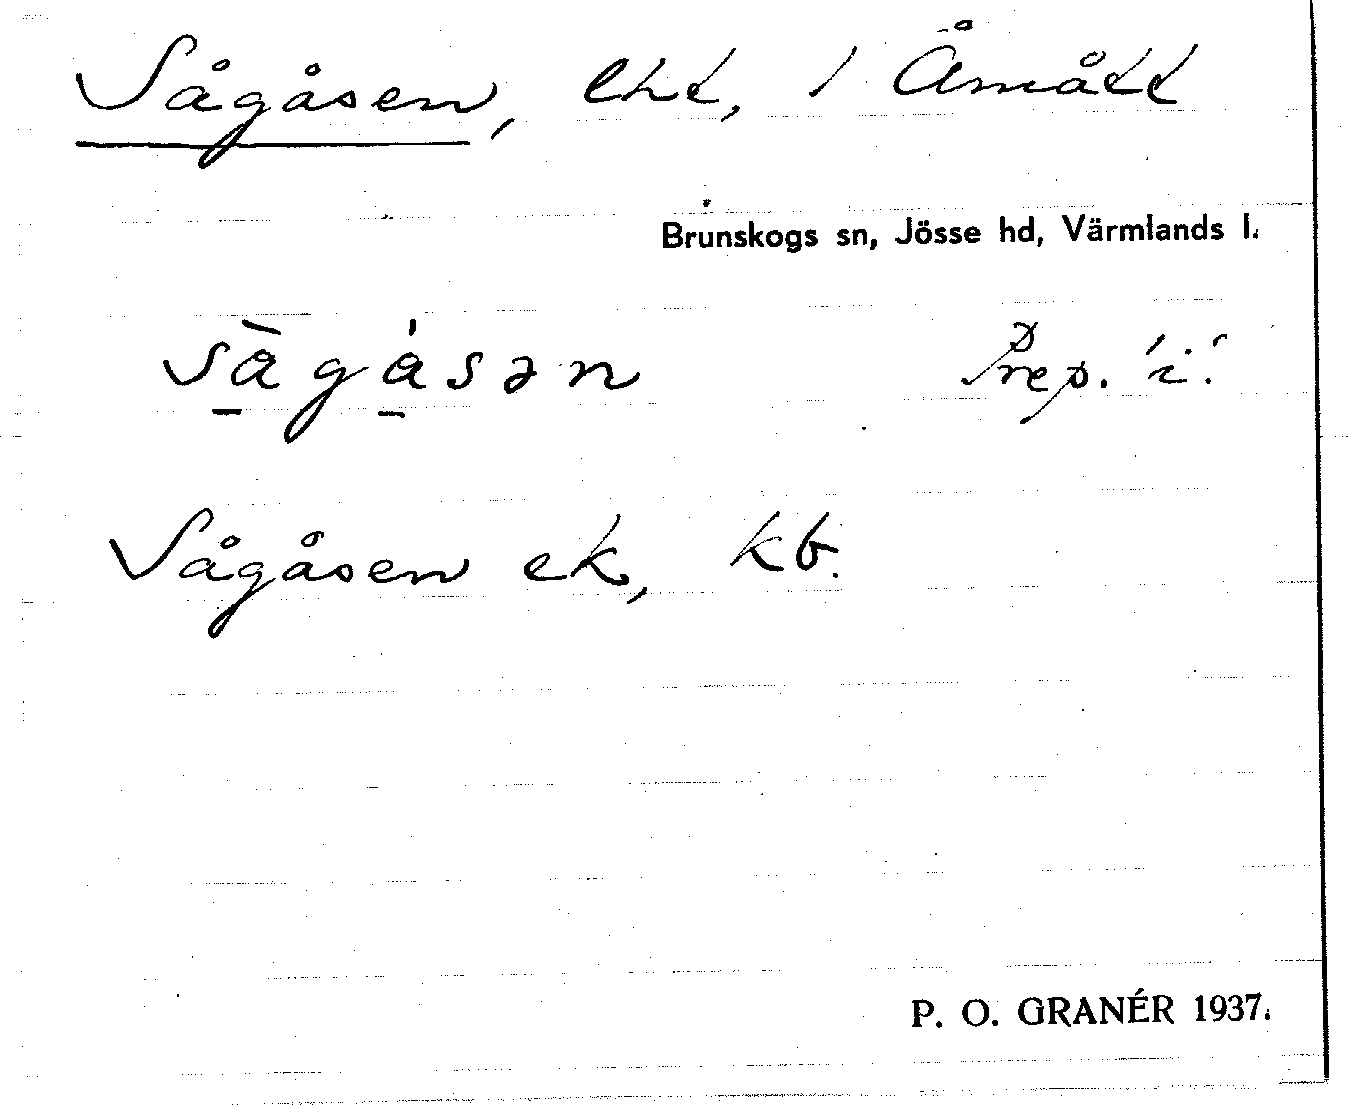 Sågåsen, lht, i Åmått
Brunskogs sn, Jösse hd, Värmlands l.
sågåsən Prep. 'i'.
Sågåsen ek, kb.
P. O. GRANÉR 1937.